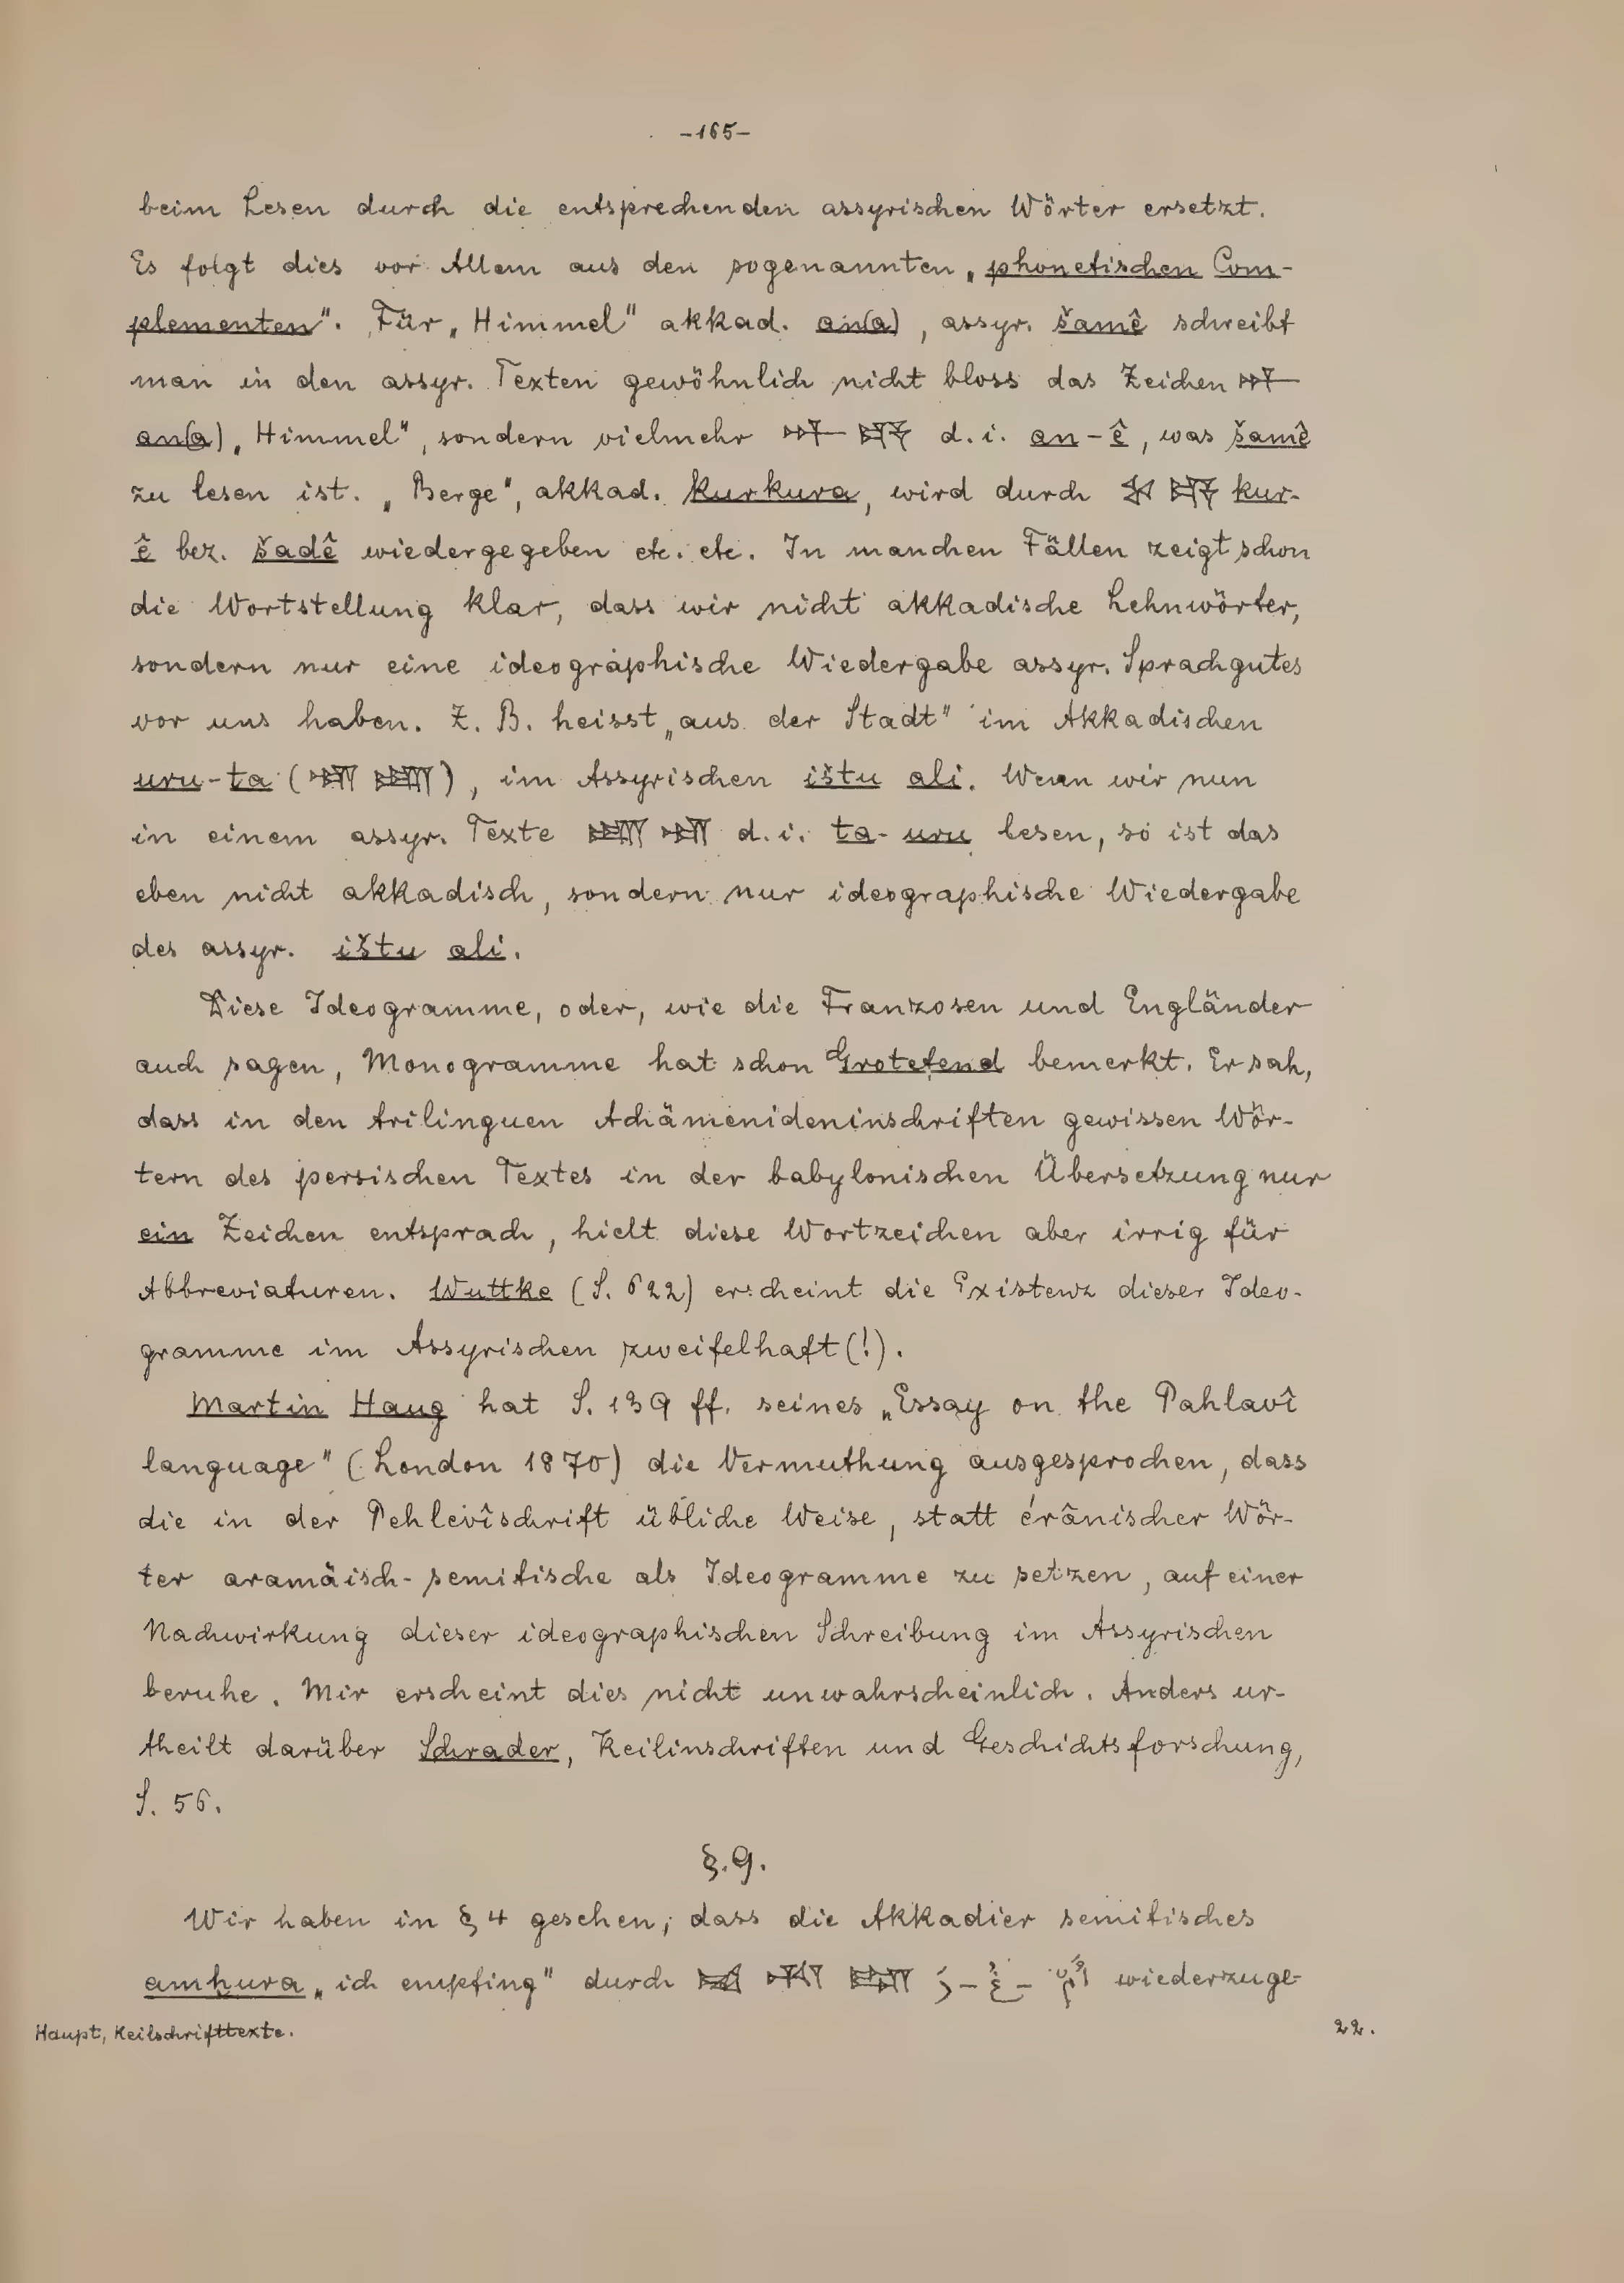 -165-
beim Lesen durch die entsprechenden assyrischen Wörter ersetzt.
Es folgt dies vor Allem aus den sogenannten „phonetischen Com-
plementen". Für „Himmel" akkad. an(a), assyr. šamê schreibt
man in den assyr. Texten gewöhnlich nicht bloss das Zeichen 𒀭
an(a) „Himmel", sondern vielmehr 𒀭 𒂊 d.i. an-ê, was šamê
zu lesen ist. „Berge", akkad. kurkura, wird durch 𒆳 𒂊 kur-
ê bez. šadê wiedergegeben etc. etc. In manchen Fällen zeigt schon
die Wortstellung klar, dass wir nicht akkadische Lehnwörter,
sondern nur eine ideographische Wiedergabe assyr. Sprachgutes
vor uns haben. Z. B. heisst „aus der Stadt" im Akkadischen
uru-ta (𒌷 𒋫), im Assyrischen ištu ali. Wenn wir nun
in einem assyr. Texte 𒋫 𒌷 d.i. ta-uru lesen, so ist das
eben nicht akkadisch, sondern nur ideographische Wiedergabe
des assyr. ištu ali.
Diese Ideogramme, oder, wie die Franzosen und Engländer
auch sagen, Monogramme hat schon Grotefend bemerkt. Er sah,
dass in den trilinguen Achämenideninschriften gewissen Wör-
tern des persischen Textes in der babylonischen Übersetzung nur
ein Zeichen entsprach, hielt diese Wortzeichen aber irrig für
Abbreviaturen. Wuttke (S. 622) erscheint die Existenz dieser Ideo-
gramme im Assyrischen zweifelhaft (!).
Martin Haug hat S. 139 ff. seines „Essay on the Pahlavî
language" (London 1870) die Vermuthung ausgesprochen, dass
die in der Pehlevîschrift übliche Weise, statt érânischer Wör-
ter aramäisch-semitische als Ideogramme zu setzen, auf einer
Nachwirkung dieser ideographischen Schreibung im Assyrischen
beruhe. Mir erscheint dies nicht unwahrscheinlich. Anders ur-
theilt darüber Schrader, Keilinschriften und Geschichtsforschung,
S. 56.
§. 9.
Wir haben in § 4 gesehen, dass die Akkadier semitisches
amḫura „ich empfing" durch wiederzuge-
Haupt, Keilschrifttexte.
22.